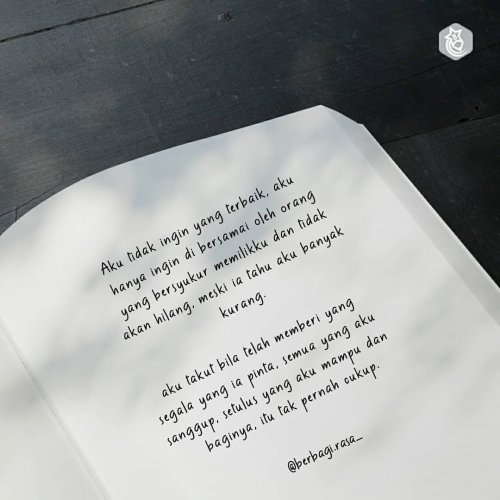 Aku tidak ingin yang terbaik, aku
hanya ingin di bersamai oleh orang
yang bersyukur memilikku dan tidak
akan hilang, meski ia tahu aku banyak
kurang.
aku takut bila telah memberi yang
segala yang ia pinta, semua yang aku
sanggup, setulus yang aku mampu dan
baginya, itu tak pernah cukup.
@berbagi.rasa_